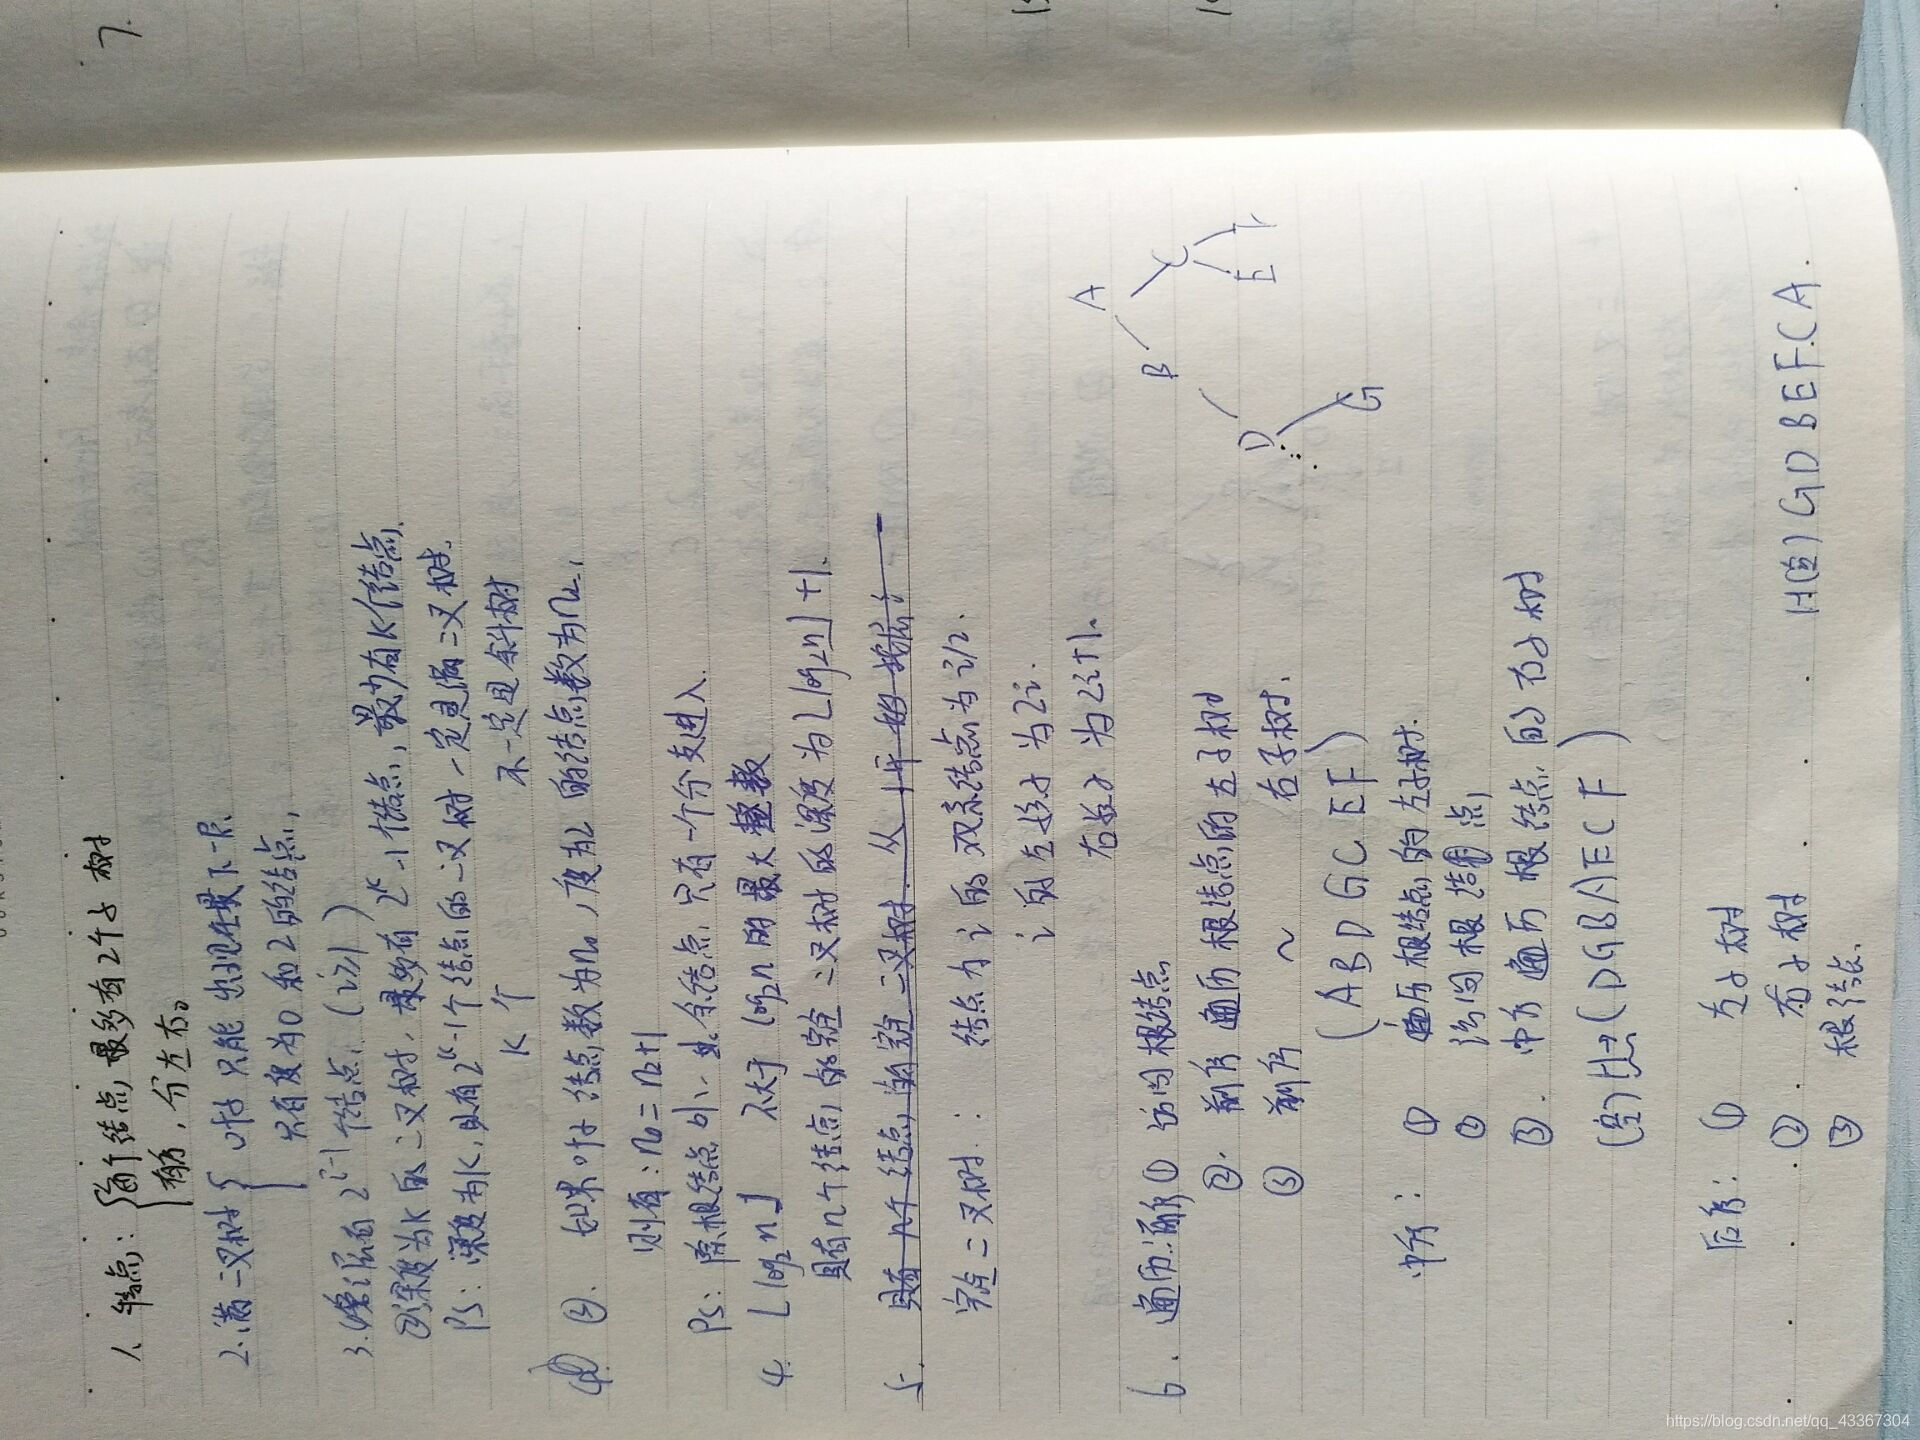 1. 特点: 每个结点最多有2个子树
有序, 分左右。
2. 满二叉树 叶子只能出现在最下一层.
只有度为0和2的结点,
3. ①第i层有 2^(i-1) 个结点, (i≥1)
②深度为K的二叉树, 最多有 2^K-1个结点, 最少有K个结点.
PS: 深度为K, 且有2^K-1个结点的二叉树一定是满二叉树.
K个 不一定是斜树
③. 如果叶子结点数为n0, 度为2的结点数为n2,
则有: n0=n2+1
PS: 除根结点外, 其余结点, 只有一个分支进入.
4. ⌊log2 n⌋ 不大于 log2n的最大整数
具有n个结点的完全二叉树的深度为⌊log2n⌋+1.
5. 具有n个结点的完全二叉树. 从1开始
完全二叉树: 结点为i的双亲结点为i/2.
i的左孩子为2i.
右孩子为2i+1.
6. 遍历: 前序① 访问根结点
②. 前序遍历根结点的左子树
③ 前序 ~ 右子树.
(A B D G C E F)
A
B C
D E F
G
中序: ① 遍历根结点的左子树.
② 访问根结点
③. 中序遍历根结点的右子树
(D G B A E C F)
后序: ① 左子树
②. 右子树
③ 根结点.
H(空) G D B E F C A
7.
https://blog.csdn.net/qq_43367304